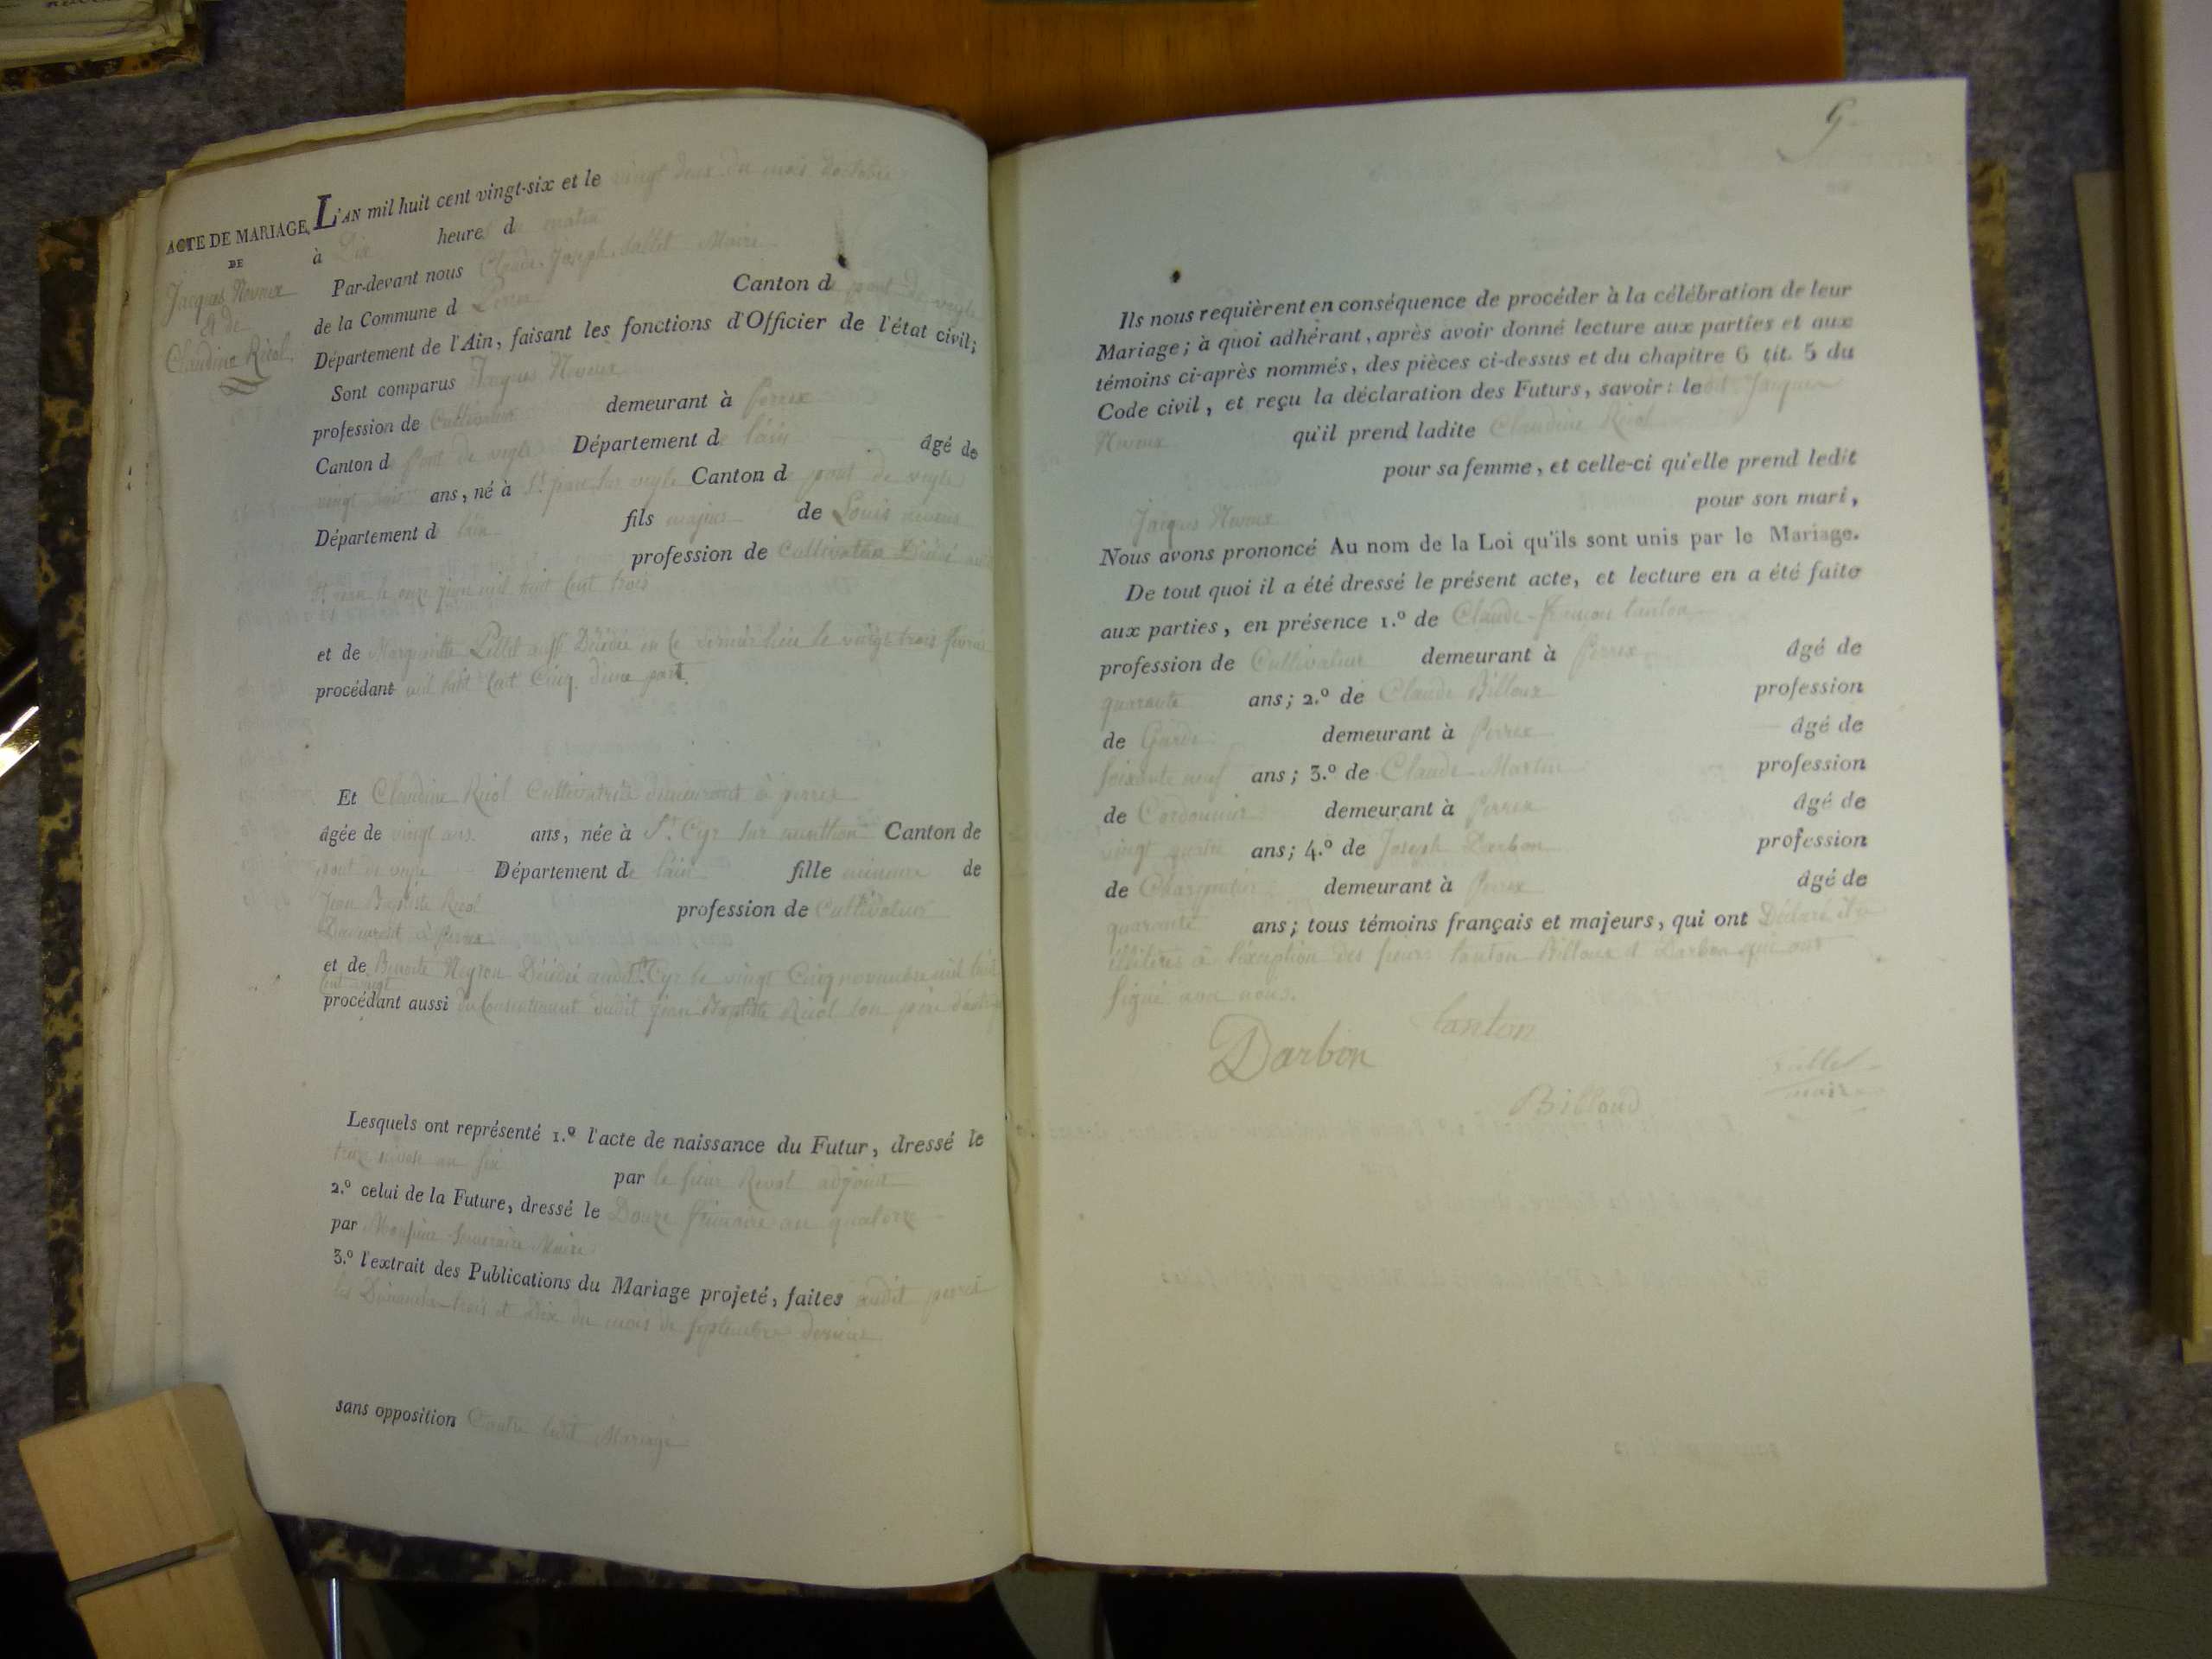 ACTE DE MARIAGE
DE
Jacques Neveux
et de
Claudine Ricol.
L'AN mil huit cent vingt-six et le vingt deux du mois d'octobre
à Dix heures du matin
Par-devant nous Claude Joseph Maire
de la Commune de Perrex Canton de pont de veyle
Département de l'Ain, faisant les fonctions d'Officier de l'état civil;
Sont comparus Jacques Neveux
profession de Cultivateur demeurant à perrex
Canton de pont de veyle Département de lain âgé de
vingt huit ans, né à St jean sur veyle Canton de pont de veyle
Département de lain fils majeur de Louis neveux
profession de Cultivateur Décédé
St jean le onze mil huit Cent trois
et de Marguerite Décédée en ce lieu le vingt trois
procédant mil huit Cent Cinq d'une part.
Et Claudine Ricol Cultivatrice demeurant à perrex
âgée de vingt ans. ans, née à St Cyr sur menthon Canton de
pont de veyle Département de lain fille mineure de
Jean Baptiste Ricol profession de Cultivateur
Demeurant à perrex
et de Benoite Neyron Décédée audit St Cyr le vingt Cinq novembre mil huit
Cent vingt
procédant aussi du Consentement dudit Jean Baptiste Ricol son père
Lesquels ont représenté 1.º l'acte de naissance du Futur, dressé le
an six par le sieur Revol adjoint
2.º celui de la Future, dressé le Douze frimaire an quatorze
par Monsieur Maire
3.º l'extrait des Publications du Mariage projeté, faites audit perrex
les Dimanches trois et Dix du mois de septembre dernier
sans opposition Contre ledit Mariage
Ils nous requièrent en conséquence de procéder à la célébration de leur
Mariage; à quoi adhérant, après avoir donné lecture aux parties et aux
témoins ci-après nommés, des pièces ci-dessus et du chapitre 6 tit. 5 du
Code civil, et reçu la déclaration des Futurs, savoir: ledit Jacques
Neveux qu'il prend ladite Claudine Ricol
pour sa femme, et celle-ci qu'elle prend ledit
Jacques Neveux pour son mari,
Nous avons prononcé Au nom de la Loi qu'ils sont unis par le Mariage.
De tout quoi il a été dressé le présent acte, et lecture en a été faite
aux parties, en présence 1.º de Claude françois tanton
profession de Cultivateur demeurant à perrex âgé de
quarante ans; 2.º de Claude Billoux profession
de Garde demeurant à perrex âgé de
soixante neuf ans; 3.º de Claude Martin profession
de Cordonnier demeurant à perrex âgé de
vingt quatre ans; 4.º de Joseph Darbon profession
de Charpentier demeurant à perrex âgé de
quarante ans; tous témoins français et majeurs, qui ont Déclaré être
illitérés à l'exception des sieurs tanton Billoux et Darbon qui ont
signé avec nous.
Darbon
tanton
Billoud
maire